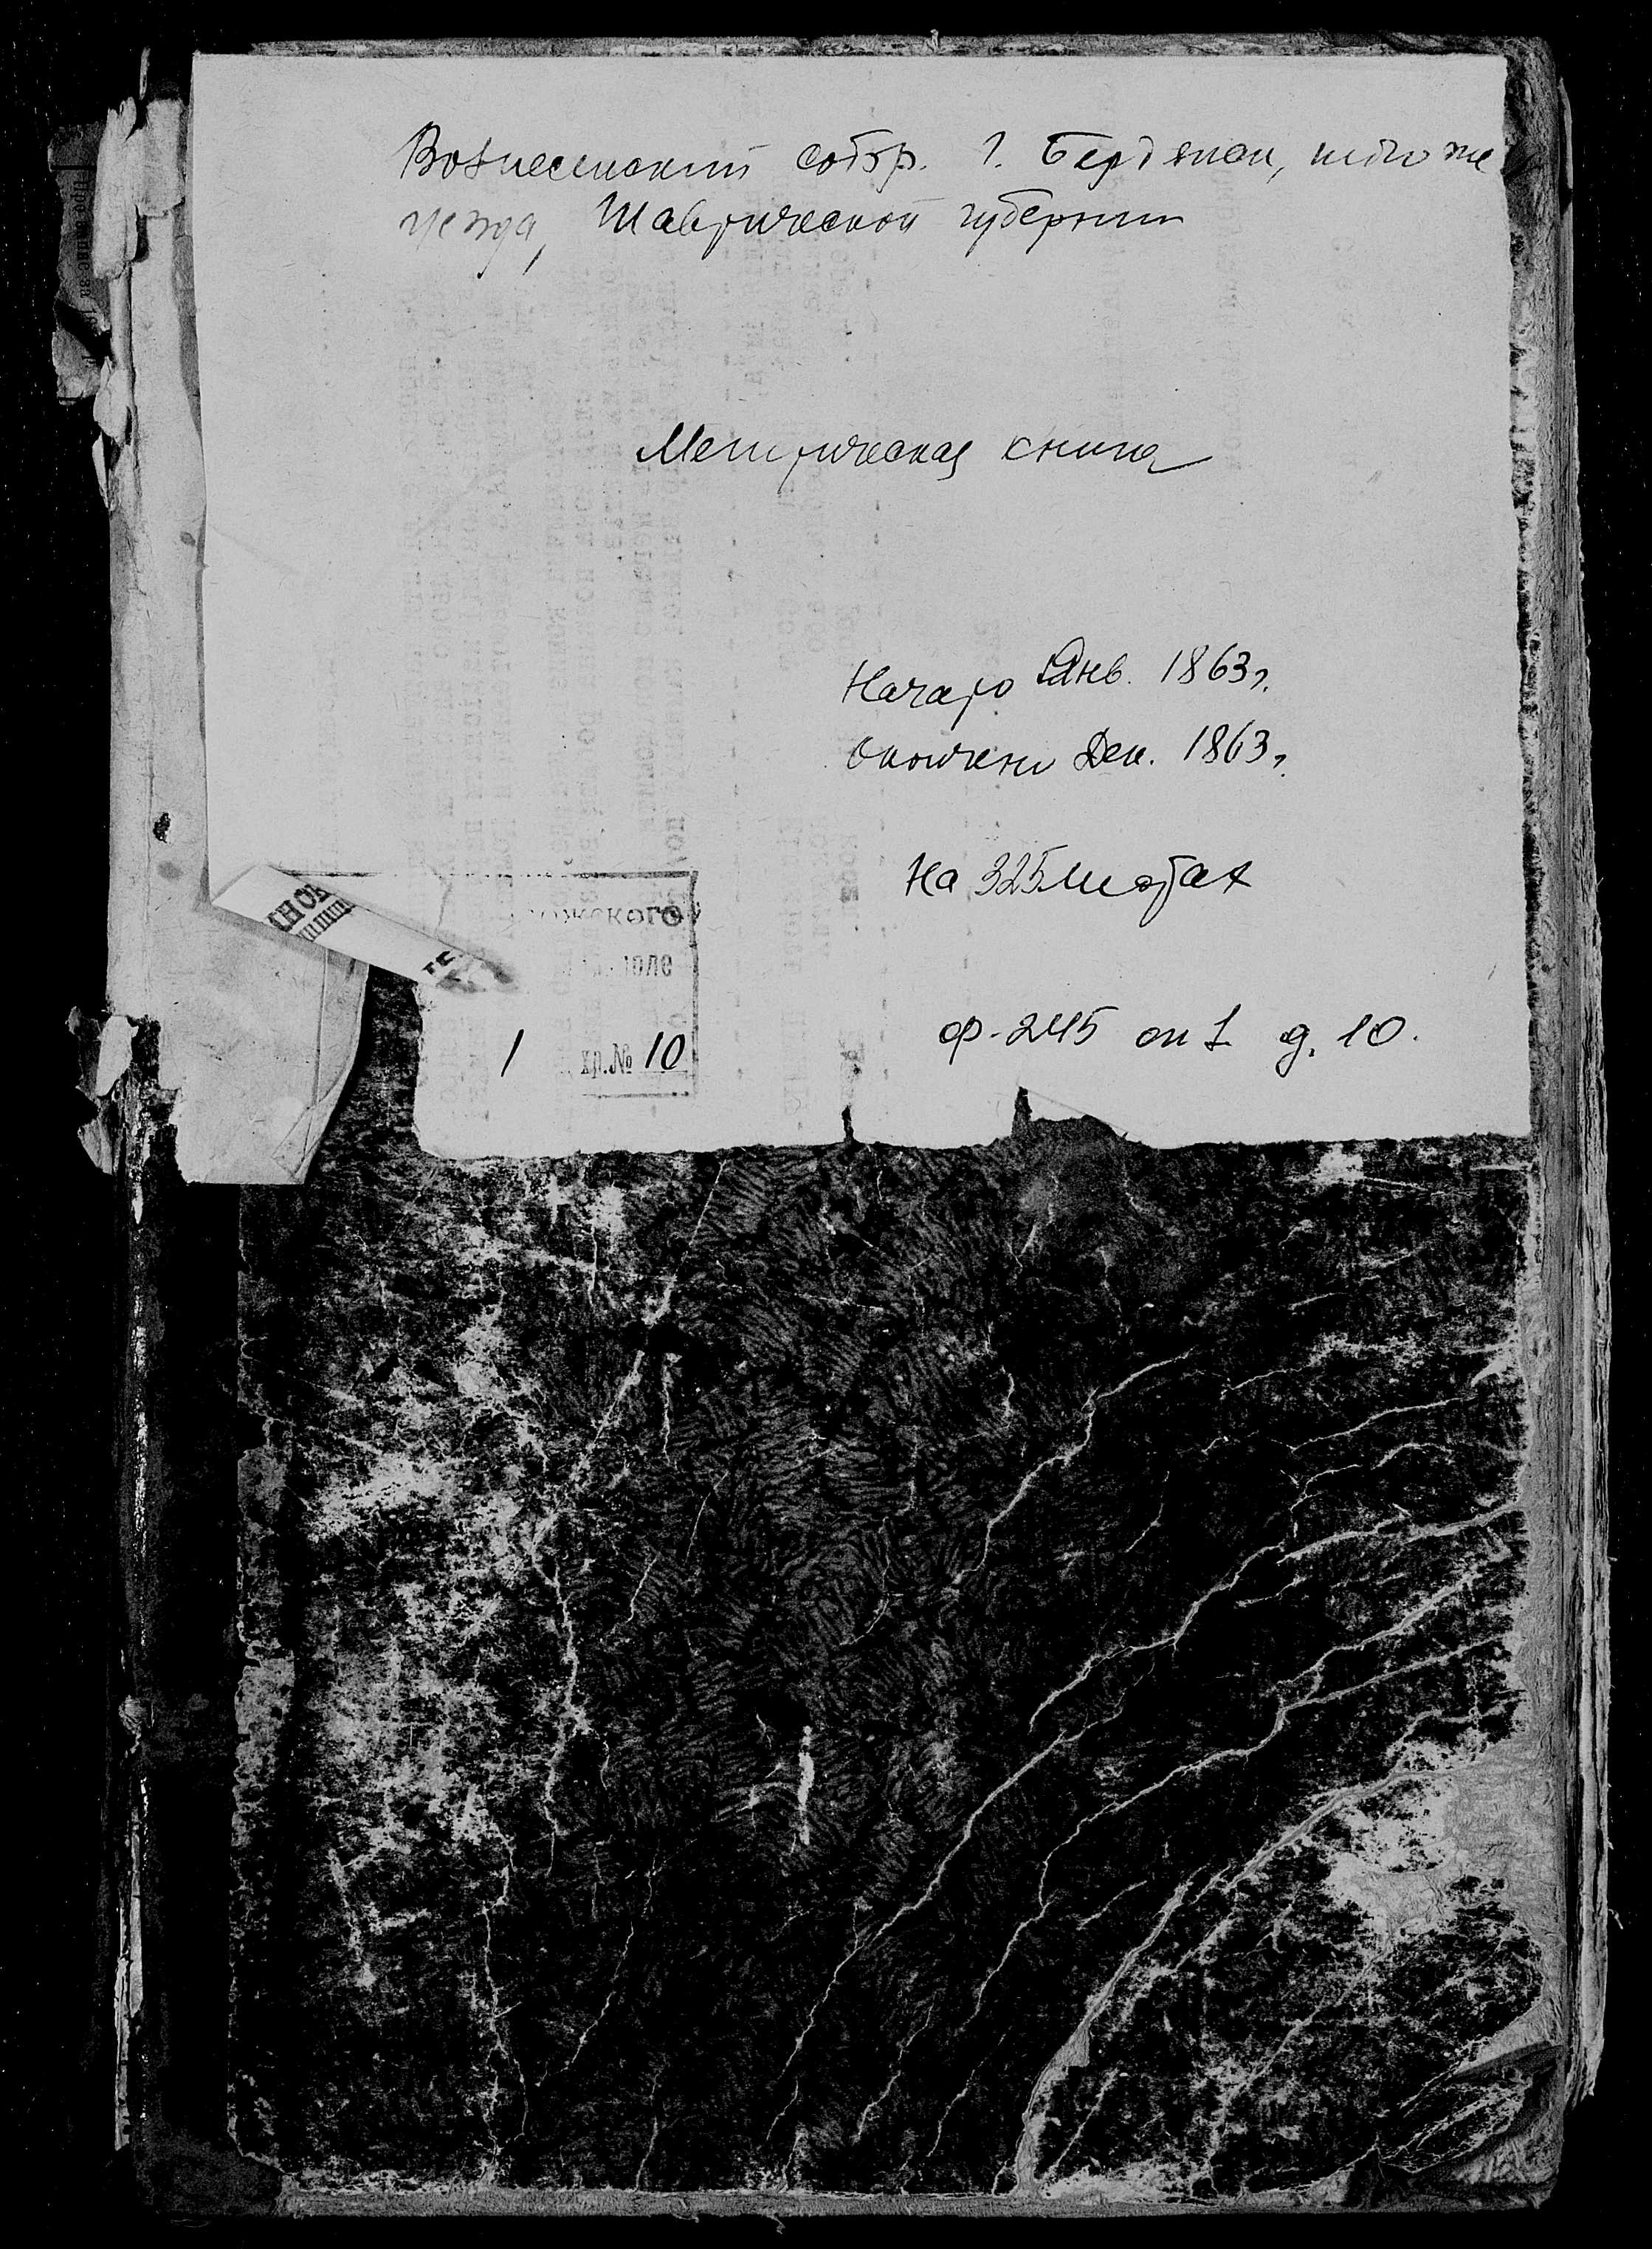 Вознесенский собор. г. Бердянск, того же
уезда, Таврической губернии
Метрическая книга
Начало Янв. 1863 г.
Окончено Дек. 1863 г.
На 325 листах
ожского
1 хр.№ 10
ф-245 оп 1 д. 10.